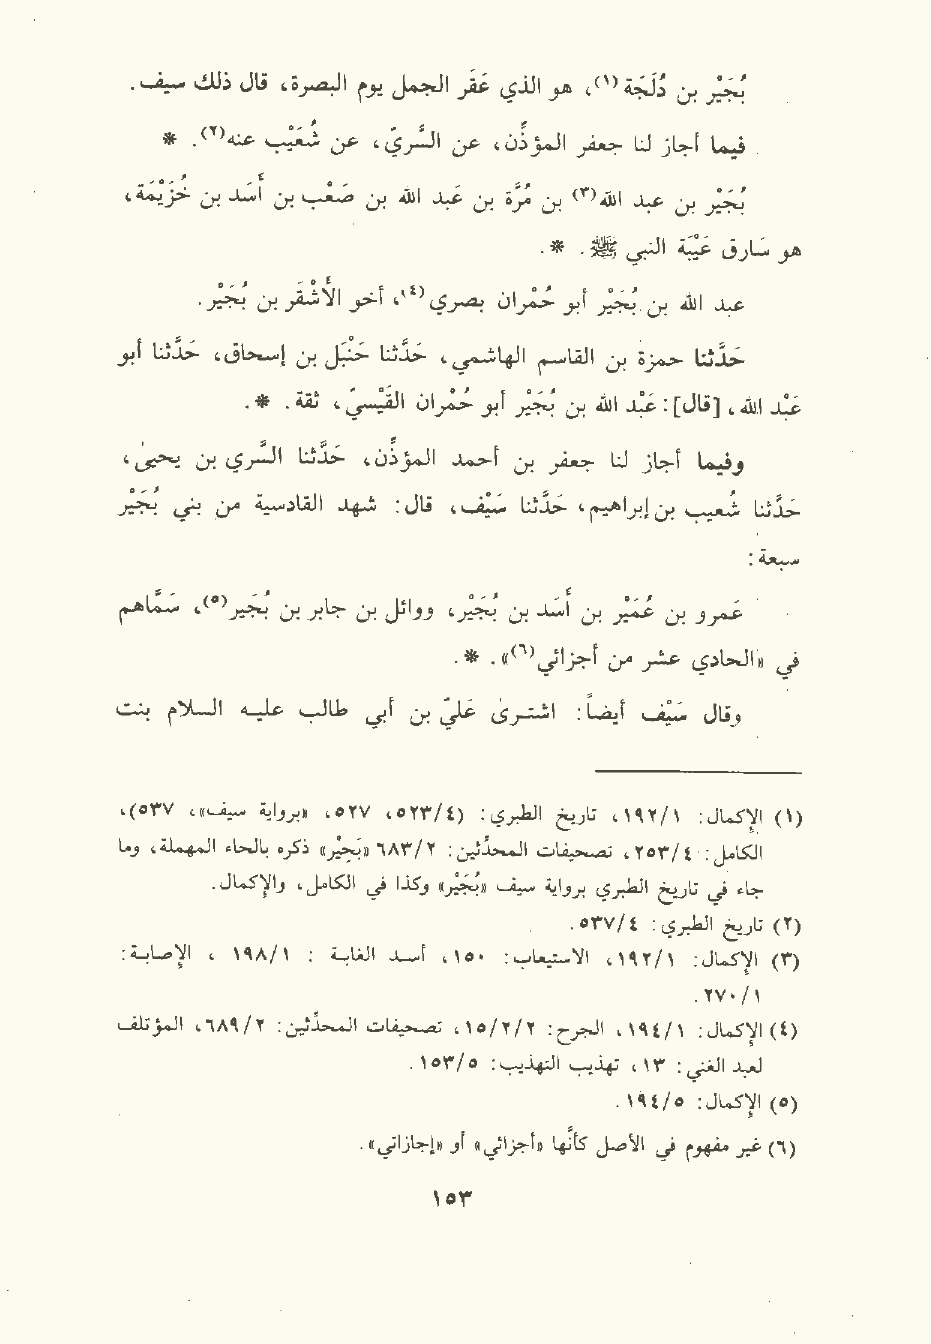 بُجَيْر بن دُلَجَة(١)، هو الذي عَقَر الجمل يوم البصرة، قال ذلك سيف.
فيما أجاز لنا جعفر المؤذّن، عن السَّريّ، عن شُعَيْب عنه(٢). *
بُجَيْر بن عبد الله(٣) بن مُرَّة بن عَبد الله بن صَعْب بن أَسَد بن خُزَيْمَة،
هو سَارق عَيْبَة النبي ﷺ. *.
عبد الله بن بُجَيْر أبو حُمْران بصري(٤)، أخو الأَشْقَر بن بُجَيْر.
حَدَّثنا حمزة بن القاسم الهاشمي، حَدَّثنا حَنْبَل بن إسحاق، حَدَّثنا أبو
عَبْد الله، [قال]: عَبْد الله بن بُجَيْر أبو حُمْران القَيْسيّ، ثقة. *.
وفيما أجاز لنا جعفر بن أحمد المؤذّن، حَدَّثنا السَّري بن يحيىٰ،
حَدَّثنا شُعيب بن إبراهيم، حَدَّثنا سَيْف، قال: شهد القادسية من بني بُجَيْر
سبعة:
عَمرو بن عُمَيْر بن أَسَد بن بُجَيْر، ووائل بن جابر بن بُجَير(٥)، سَمَّاهم
في «الحادي عشر من أجزائي(٦)». *.
وقال سَيْف أيضاً: اشترىٰ عَليّ بن أبي طالب عليه السلام بنت
(١) الإكمال: ١/١٩٢، تاريخ الطبري: (٤/٥٢٣، ٥٢٧، «برواية سيف»، ٥٣٧)،
الكامل: ٤/٢٥٣، تصحيفات المحدّثين: ٢/٦٨٣ «بَحِيْر» ذكره بالحاء المهملة، وما
جاء في تاريخ الطبري برواية سيف «بُجَيْر» وكذا في الكامل، والإكمال.
(٢) تاريخ الطبري: ٤/٥٣٧.
(٣) الإكمال: ١/١٩٢، الاستيعاب: ١٥٠، أسد الغابة : ١/١٩٨ ، الإصابة:
١/٢٧٠.
(٤) الإكمال: ١/١٩٤، الجرح: ٢/٢/١٥، تصحيفات المحدّثين: ٢/٦٨٩، المؤتلف
لعبد الغني: ١٣، تهذيب التهذيب: ٥/١٥٣.
(٥) الإكمال: ٥/١٩٤.
(٦) غير مفهوم في الأصل كأنّها «أجزائي» أو «إجازاتي».
١٥٣